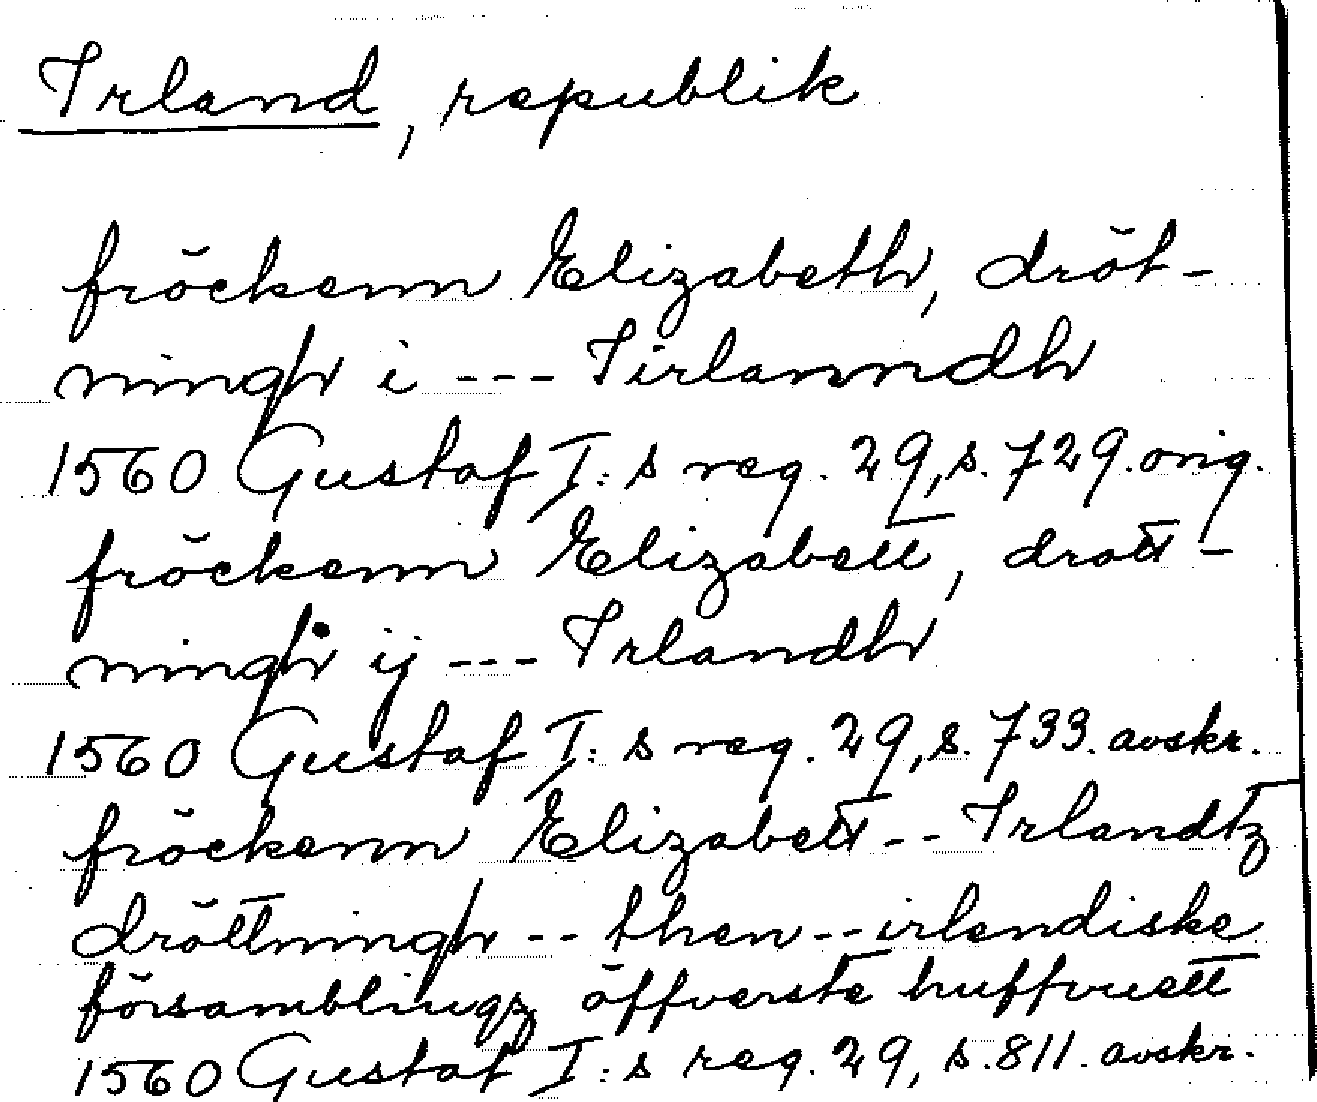 Irland, republik
fröckenn Elizabeth, dröt-
ningh i --- Iirlanndh
1560 Gustaf I:s reg. 29, s. 729. orig.
fröckenn Elizabett, drott-
ningh ij --- Irlandh
1560 Gustaf I:s reg. 29, s. 733. avskr.
fröckenn Elizabett -- Irlandtz
dröttningh -- then -- irlendiske
församblingz öffverste huffvuett
1560 Gustaf I:s reg. 29, s. 811. avskr.